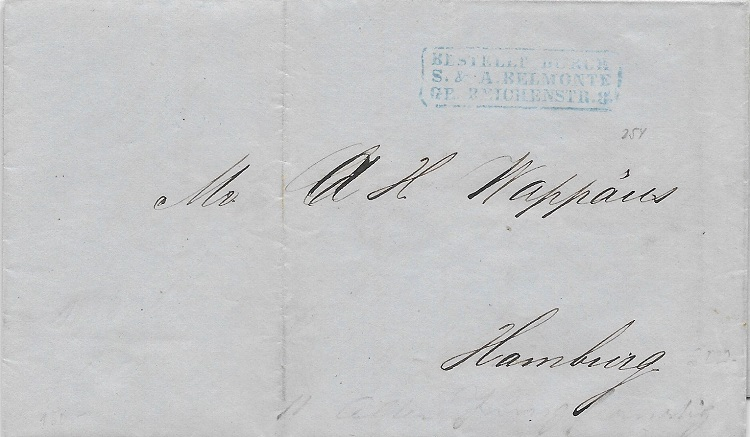 BESTELLT DURCH
S. & A. BELMONTE
GR. REICHENSTR. 3.
254
Mr. A H Wappäus
Hamburg